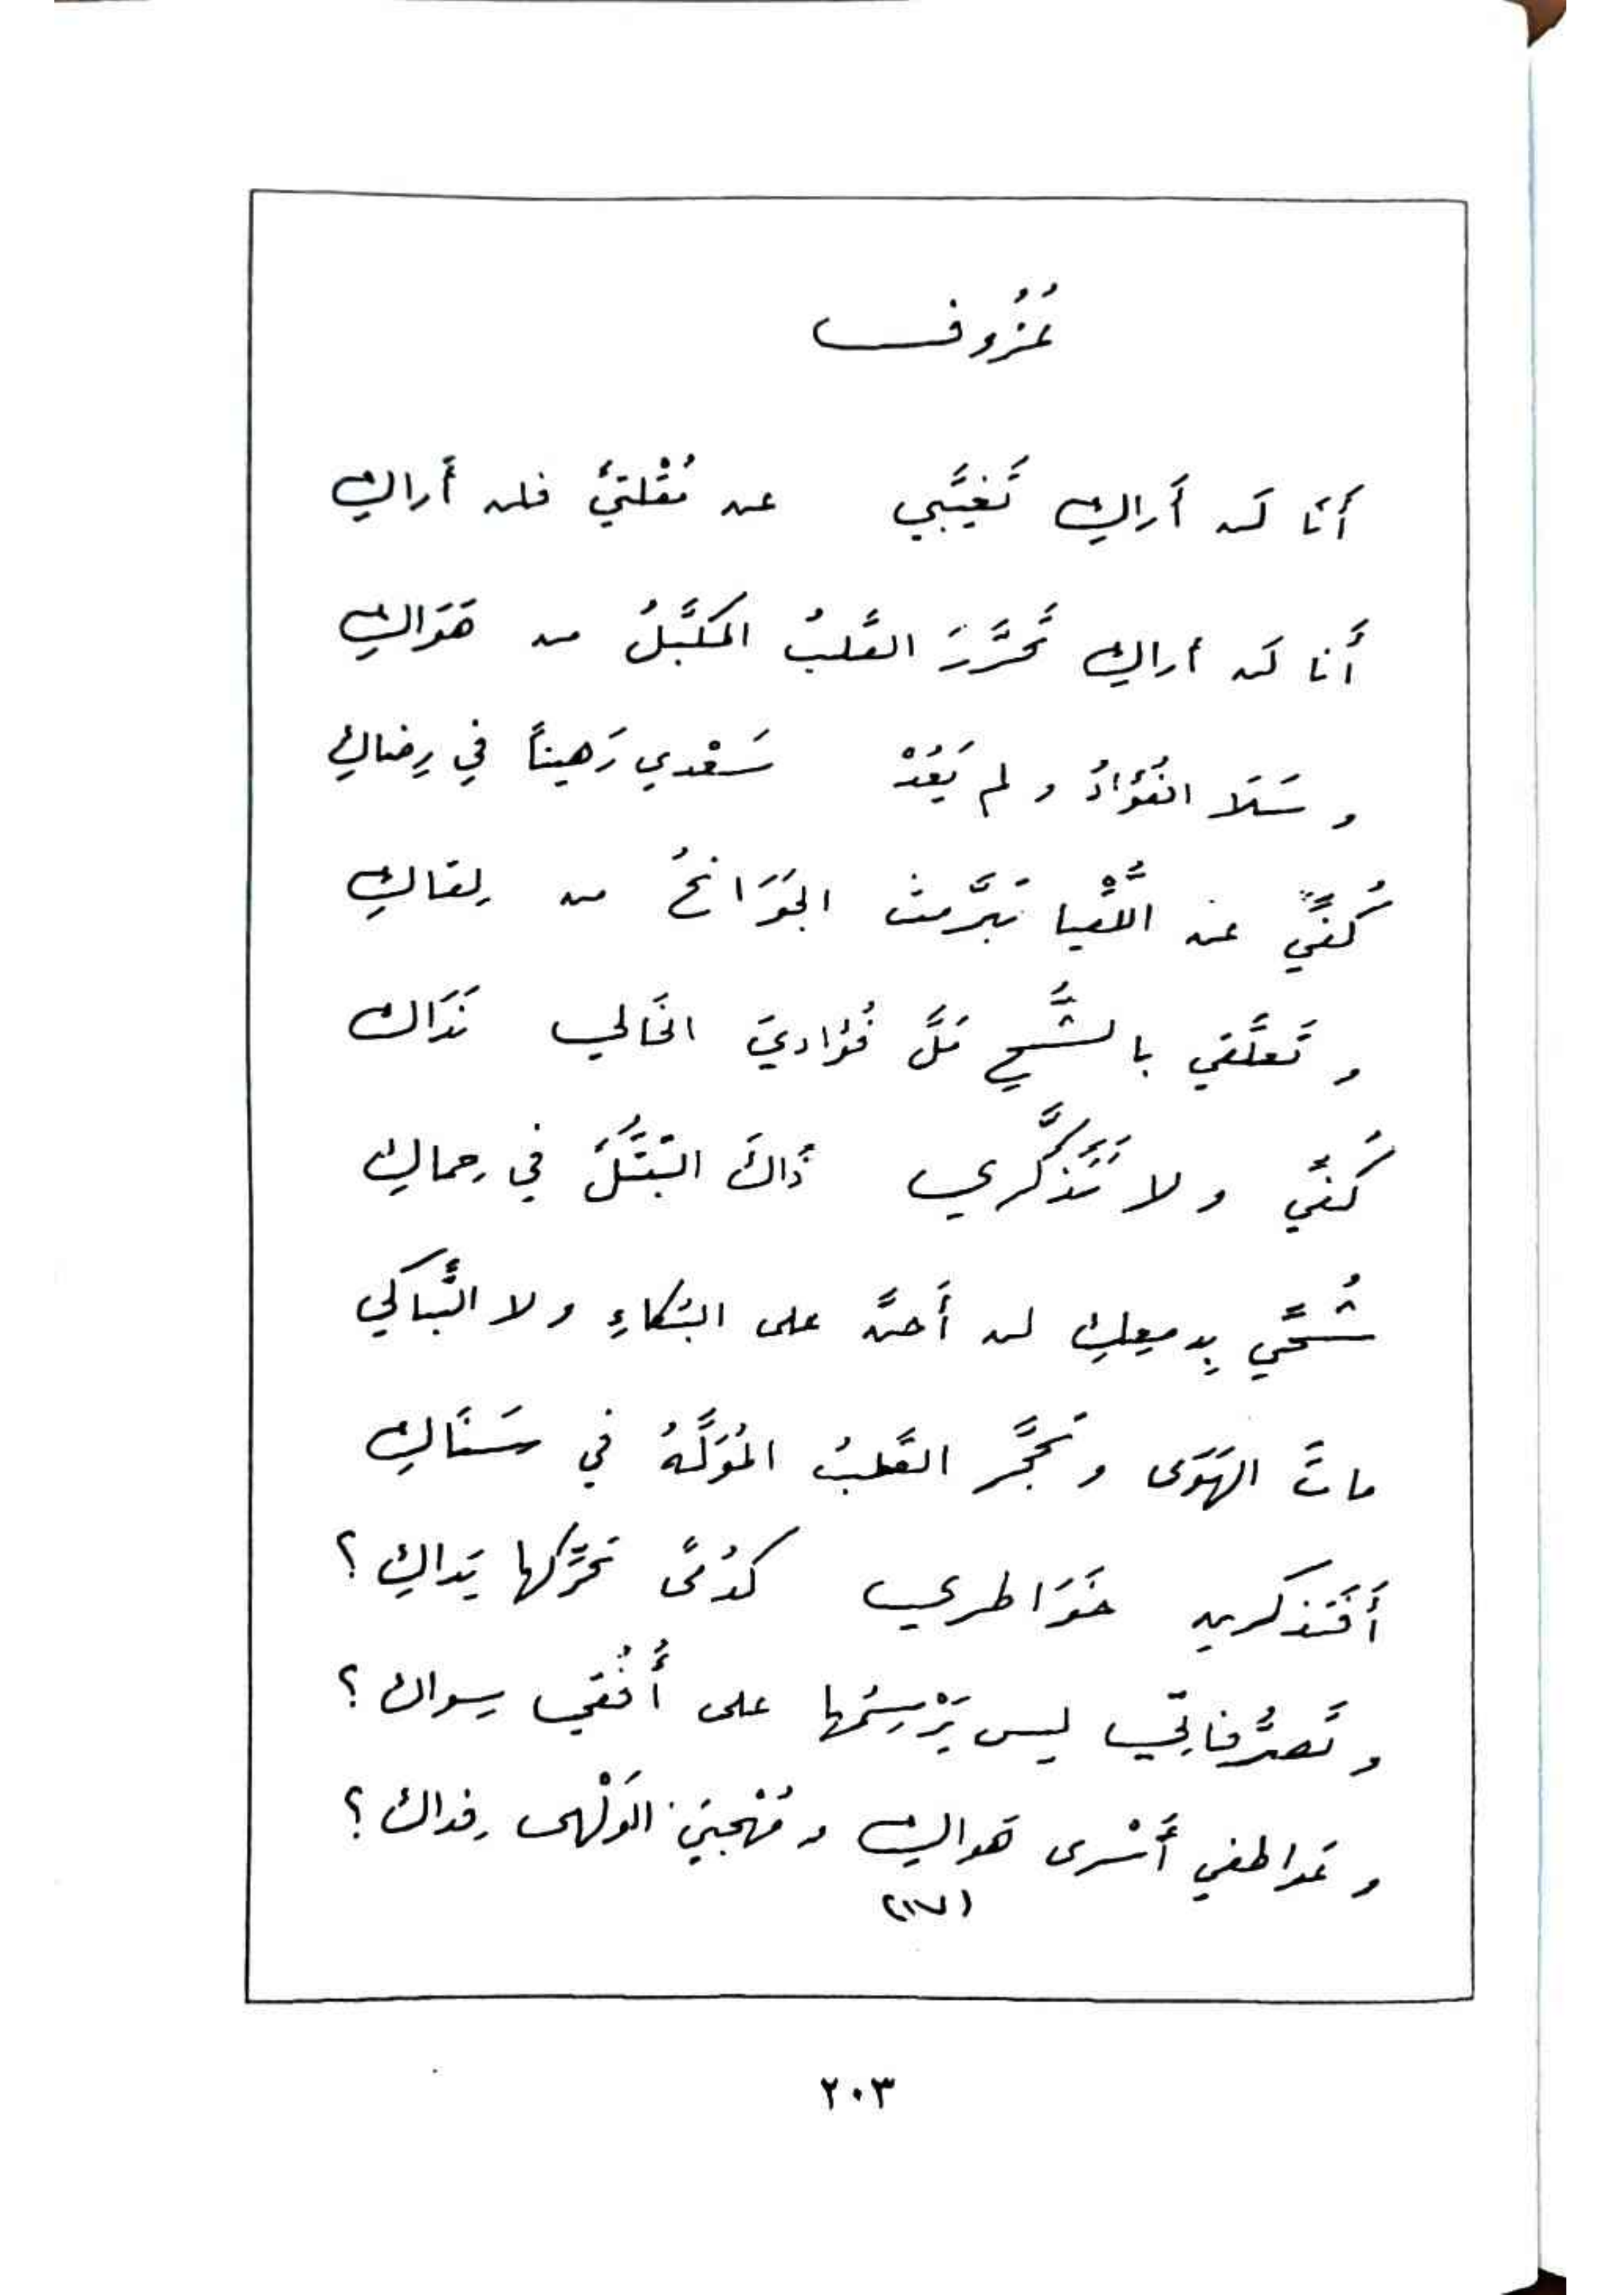 عُزُوف
أَنَا لَن أَراكِ تَغيَّبي عن مُقْلتيَّ فلن أَراكِ
أَنا لَن أراكِ تَحَرَّرَ القَلبُ المكبَّلُ من هَوَاكِ
و سَلَا الفُؤَادُ و لم يَعُدْ سَعْدي رَهيناً في رِضاكِ
كُفِّي عن اللُّقْيا تَبَرَّمت الجَوَانحُ من لِقاكِ
و تَعلَّقي بالشُّحِ مَلَّ فُؤاديَ الخَالي نَدَاك
كُفِّي ولا تَتَذَكَّري ذَاكَ التَّبَتُّلَ في حِماكِ
شُحِّي بِدمعِكِ لن أَحنَّ على البُكاءِ ولا التَّباكي
ماتَ الهَوَى و تَحَجَّر القَلبُ المُوَلَّهُ في سَنَاكِ
أَفَتَذكرين خَوَاطري كدُمىً تحَرِّكها يَداكِ ؟
و تَصرُّفاتِي ليس يَرْسِمُها على أُفُقي سِواك ؟
و عَواطفي أَسْرى هَواكِ و مُهْجتيَ الوَلْهى فِداك ؟
٢٠٣